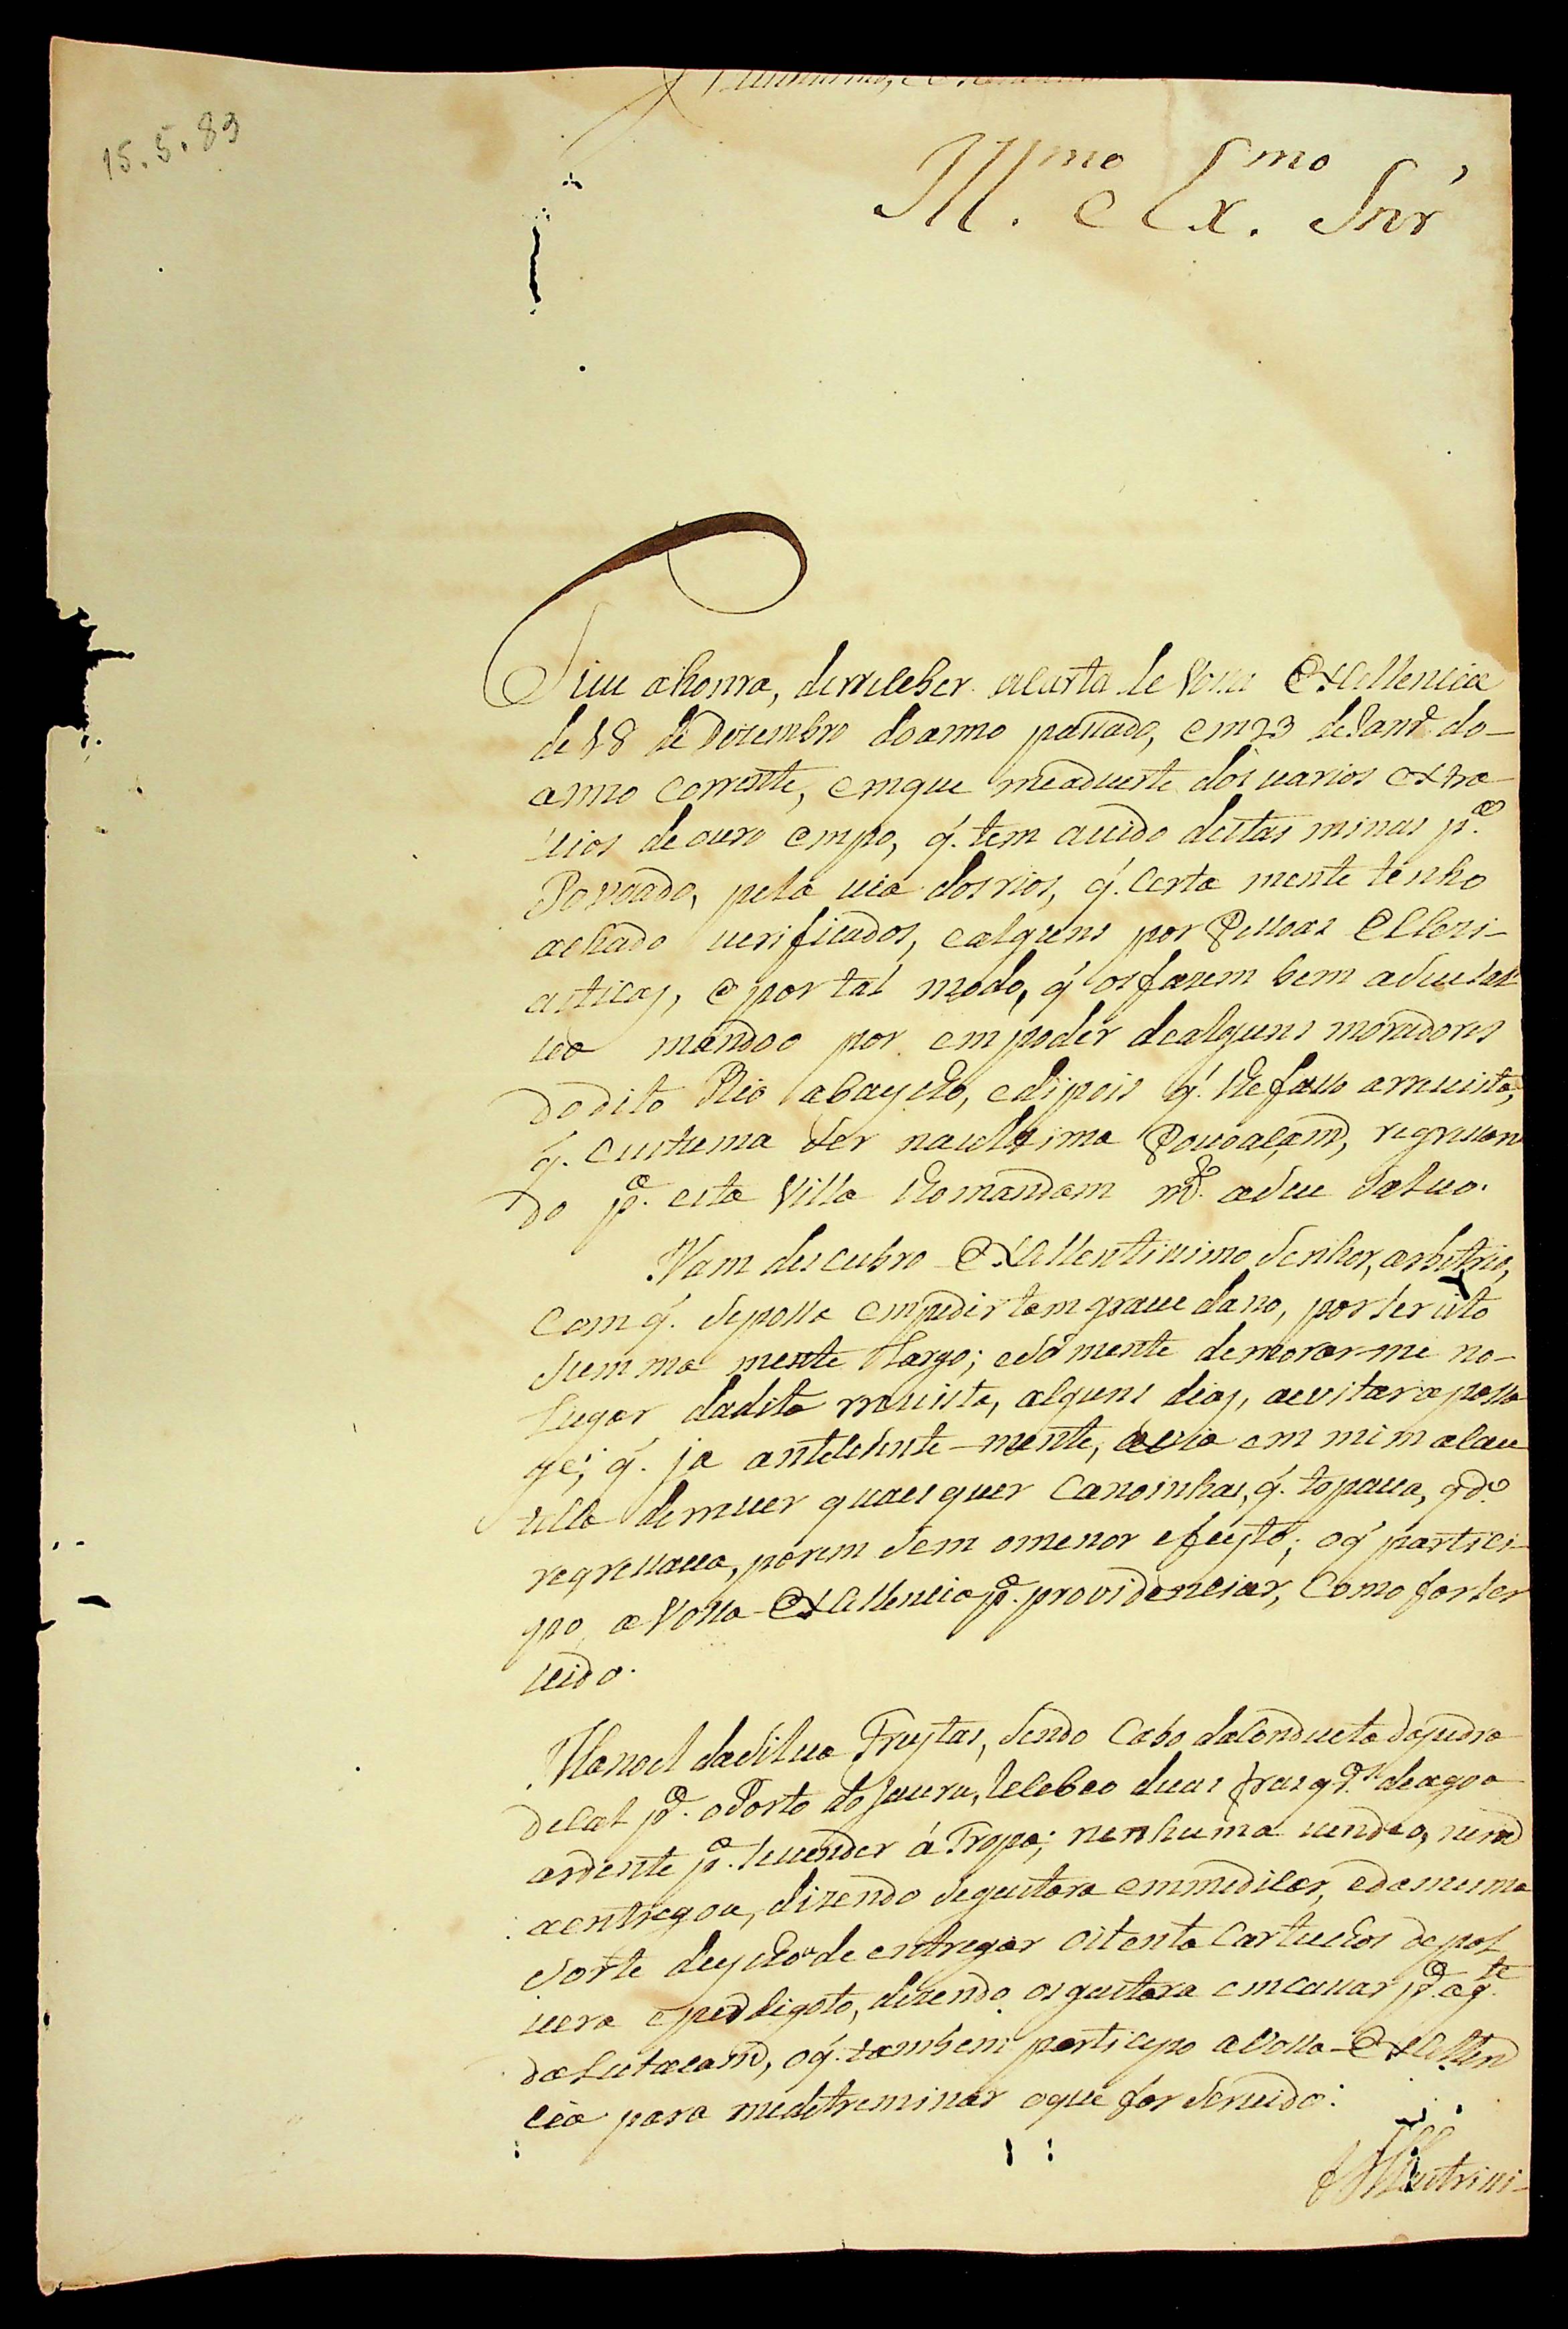 15.5.83
Ill.mo e Ex.mo Snr'
Tiue ahonra, derreceber acarta de Vossa Excellencia
de 18 de Dezembro doanno passado, em 23 de Janr.o do-
anno corrente, emque meaduerte dos uarios extra-
uios de ouro empo, q'. tem auido destas minas p.a
Povoado, pela uia dosrios, q'. certa mente tenho
achado uerificados, ealguns por Pessoas Eclezi-
asticas, e por tal modo, q' osfazem bem a seu sal-
uo mandoo por em poder dealguns moradores
do dito Rio abaycho, edipois q'. se passo arreuista,
q'. custuma ser naultima Pouoaçam, regressan
do p.a esta Villa
Nam descubro Excellentissimo Senhor, arbitrio,
com q'. seposse empedir tam graue dano, porser isto
summa mente Largo; esó mente demorar-me no-
Lugar dadita rreuista, alguns dias, aeuitaria passa
ge; q'. ja antecedente-mente, auia em mim acau
tella derreuer quaesquer canoinhas, q'. topaua, qd.o
regressaua, porem sem omenor efeyto; oq' partici-
po, a Vossa Excellencia p.a providenciar, como for ser
uido.
Manoel dasilua Freytas, sendo Cabo daconducta dapedra
decal p.a oPorto do Jauru, recebeo duas frasq.ras deagoa
ardente p.a reuender á Tropa; nenhuma uendeo, nem
aentregou, dizendo segastara emmedicar, edamesma
sorte deychou de entregar oitenta cartuchos depol
uora eperdigoto, dizendo osgastara emcassar p.a ag.te
da, oq'. tambem participo aVossa Excellen
cia para medetreminar oque for seruido.
Illustrissi-